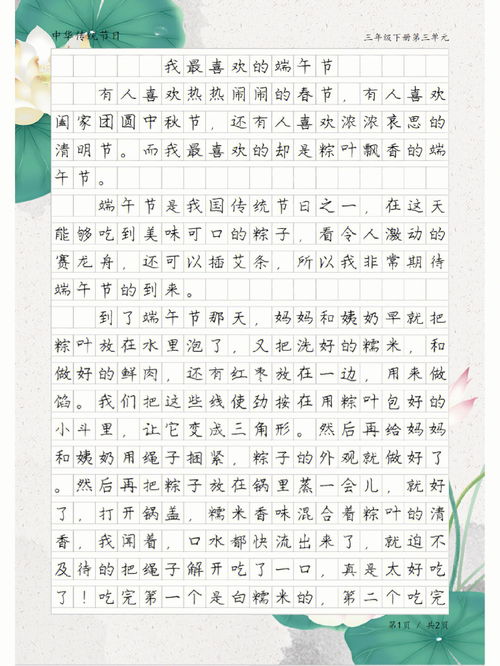 中华传统节日
三年级下册第三单元
我最喜欢的端午节
有人喜欢热热闹闹的春节，有人喜欢
阖家团圆中秋节，还有人喜欢浓浓哀思的
清明节。而我最喜欢的却是粽叶飘香的端
午节。
端午节是我国传统节日之一，在这天
能够吃到美味可口的粽子，看令人激动的
赛龙舟，还可以插艾条，所以我非常期待
端午节的到来。
到了端午节那天，妈妈和姨奶早就把
粽叶放在水里泡了，又把洗好的糯米，和
做好的鲜肉，还有红枣放在一边，用来做
馅。我们把这些线使劲按在用粽叶包好的
小斗里，让它变成三角形。然后再给妈妈
和姨奶用绳子捆紧，粽子的外观就做好了
。然后再把粽子放在锅里蒸一会儿，就好
了，打开锅盖，糯米香味混合着粽叶的清
香，我闻着，口水都快流出来了，就迫不
及待的把绳子解开吃了一口，真是太好吃
了！吃完第一个是白糯米的，第二个吃完
第1页 / 共2页